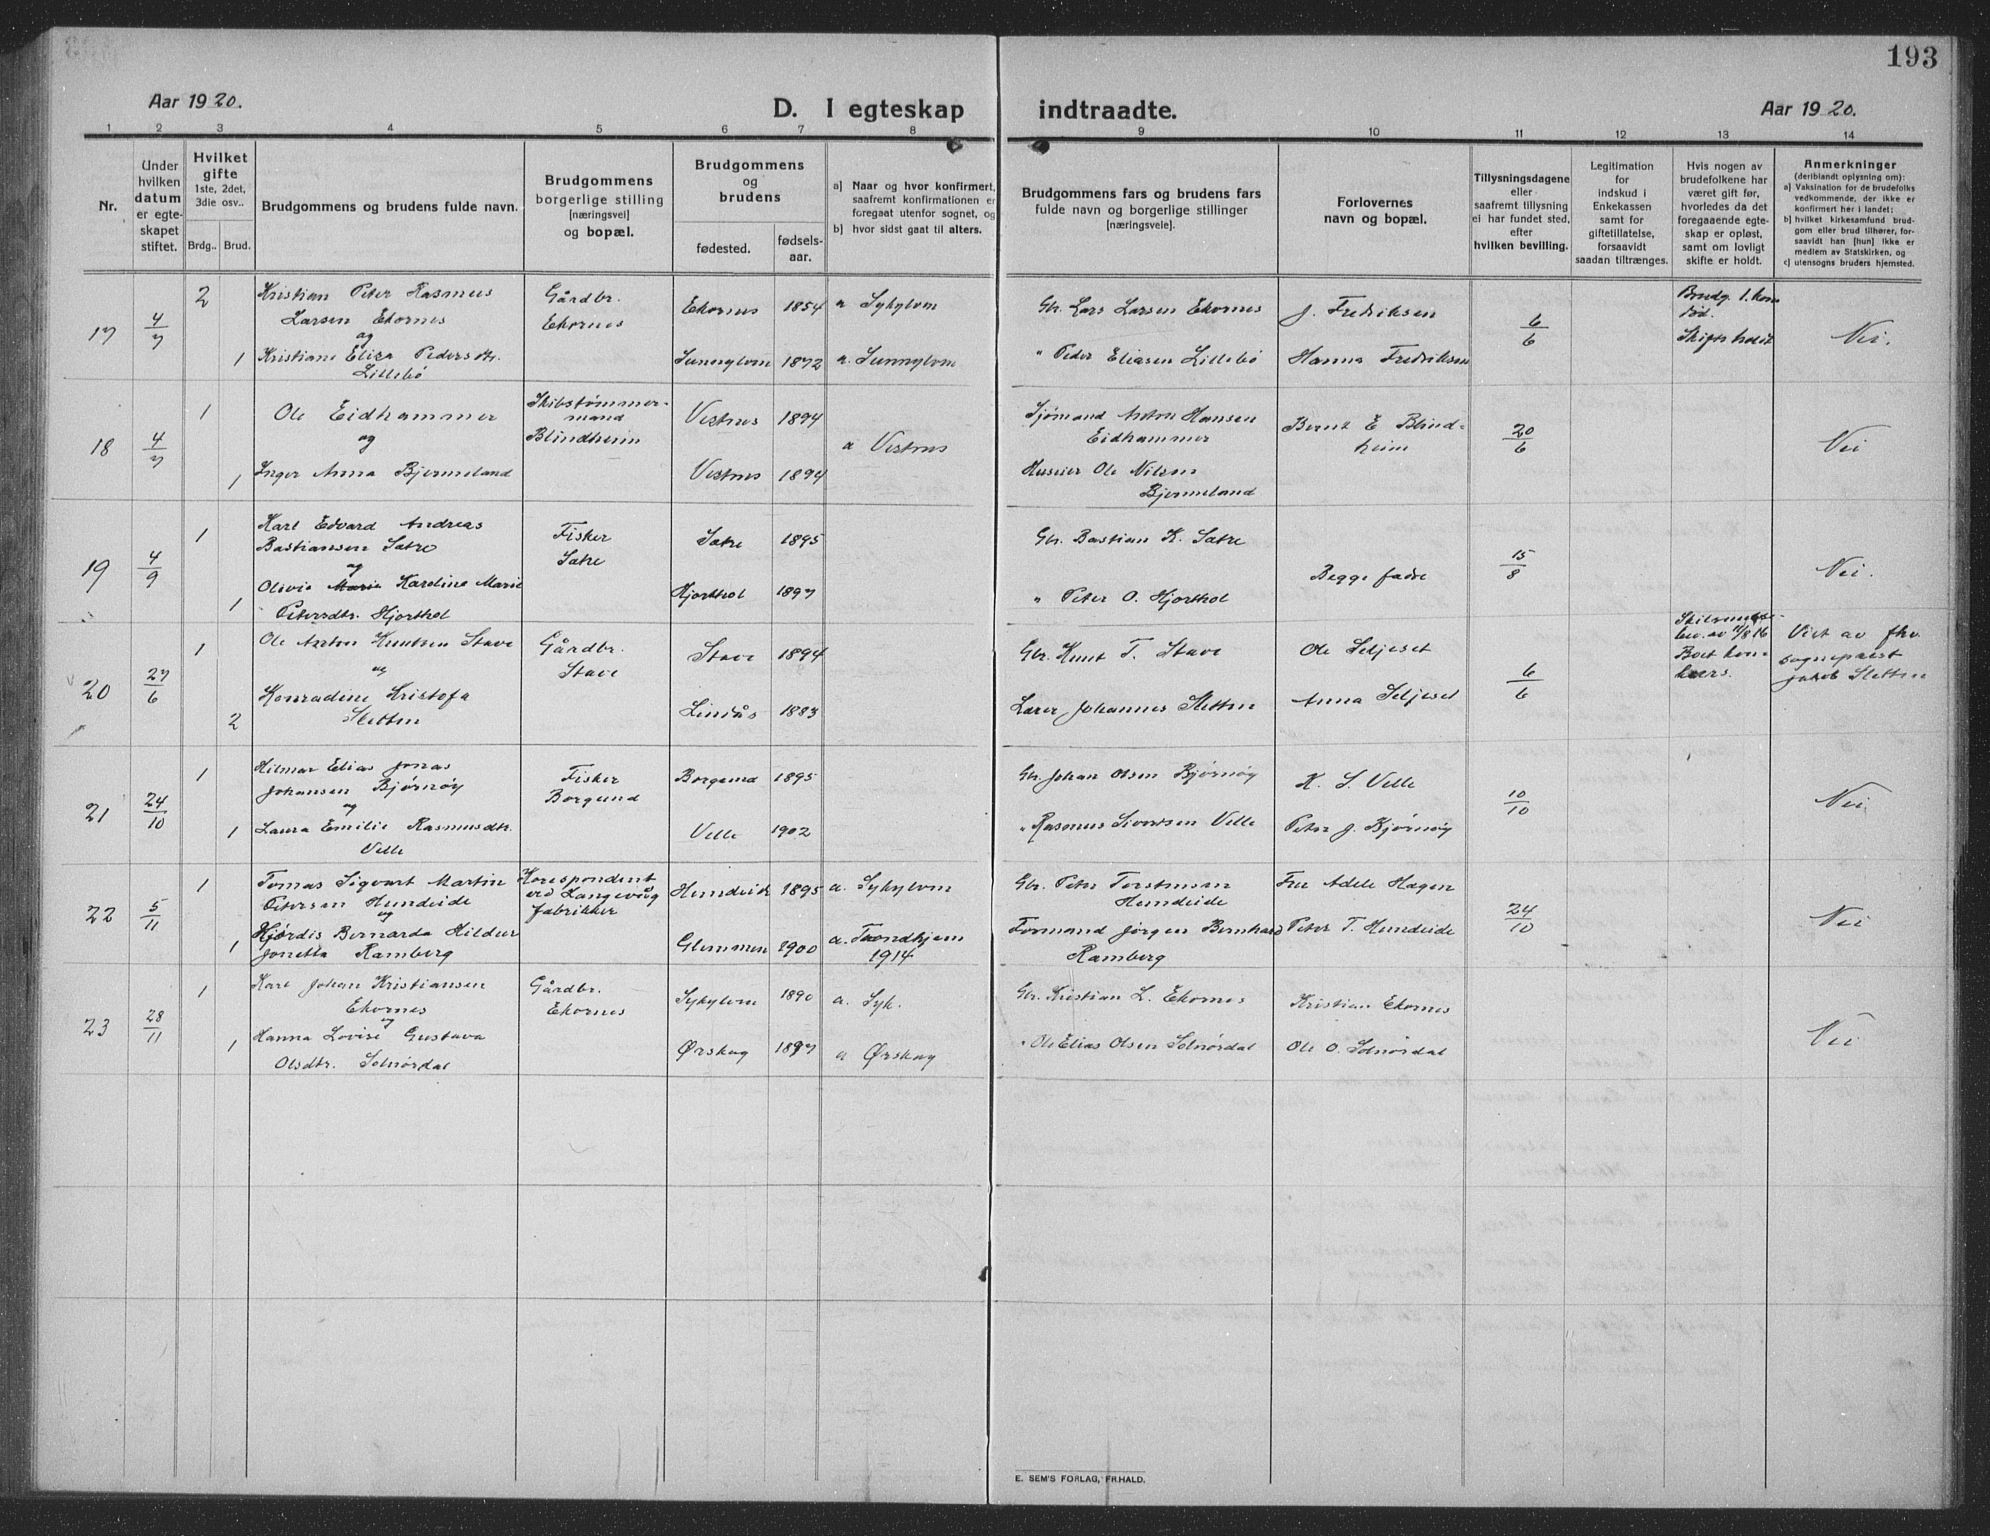 193
Aar 1920.
D. I egteskap indtraadte.
Aar 1920.
1 2 3 4 5 6 7 8 9 10 11 12 13 14
Nr.
Under
hvilken
datum
er egte-
skapet
stiftet.
Hvilket
gifte
1ste, 2det,
3die osv..
Brdg.. Brud.
Brudgommens og brudens fulde navn.
Brudgommens
borgerlige stilling
[næringsvei]
og bopæl.
Brudgommens
og
brudens
fødested.
fødsels-
aar.
a) Naar og hvor konfirmert,
saafremt konfirmationen er
foregaat utenfor sognet, og
b) hvor sidst gaat til alters.
Brudgommens fars og brudens fars
fulde navn og borgerlige stillinger
[næringsveie].
Forlovernes
navn og bopæl.
Tillysningsdagene
eller
saafremt tillysning
ei har fundet sted,
efter
hvilken bevilling.
Legitimation
for
indskud i
Enkekassen
samt for
giftetillatelse,
forsaavidt
saadan tiltrænges.
Hvis nogen av
brudefolkene har
været gift før,
hvorledes da det
foregaaende egte-
skap er opløst,
samt om lovligt
skifte er holdt.
Anmerkninger
(deriblandt oplysning om):
a) Vaksination for de brudefolks
vedkommende, der ikke er
konfirmert her i landet;
b) hvilket kirkesamfund brud-
gom eller brud tilhører, for-
saavidt han [hun] ikke er
medlem av Statskirken, og
c) utensogns bruders hjemsted.
17 4/7 2 Kristian Peter Rasmus
Larsen Ekornes
og
1 Kristiane Eliza Pedersdtr.
Lillebø
Gårdbr.
Ekornes
Ekornes 1854 a Sykylven
Sunnylven 1872 a. Sunnylven
Gbr. Lars Larsen Ekornes
" Peder Eliasen Lillebø
J. Fredriksen
Hanna Fredriksen
6/6
Brudg. 1. kone
død.
Skifte holdt
Nei.
18 4/7 1 Ole Eidhammer
og
1 Inger Anna Bjermeland
Skibstømmer-
mand
Blindheim
Vestnes 1894
Vestnes 1894
a Vestnes
Sjømand Anton Hansen
Eidhammer
Huseier Ole Nilsen
Bjermeland
Bernt E Blind-
heim
20/6
Nei
19 4/9 1 Karl Edvard Andreas
Bastiansen Satre
og
1 Olivie Marie Karoline Marie
Petersdtr. Hjorthol
Fisker
Satre
Satre 1895
Hjorthol 1897
Gbr. Bastian K. Satre
" Peter O. Hjorthol
Begge fedre
15/8
Nei.
20 27/6 1 Ole Anton Knutsen Stave
og
2 Konradene Kristofa
Sletten
Gårdbr.
Stave
Stave 1894
Lindås 1883
Gbr. Knut T. Stave
Lærer Johannes Sletten
Ole Seljeset
Anna Seljeset
6/6
Boet kon-
kurs.
Viet av fhv.
sogneprest
Jakob Sletten
21 24/10 1 Hilmar Elias Jonas
Johansen Bjørnøy
og
1 Laura Emilie Rasmusdtr.
Velle
Fisker
Borgund
Borgund 1895
Velle 1902
Gbr. Johan Olsen Bjørnøy
" Rasmus Sivertsen Velle
K. S. Velle
Peter J. Bjørnøy
10/10
Nei
22 5/11 1 Tomas Sigvart Martin
Petersen Hundeide
og
1 Hjørdis Bernarda Hildur
Jonetta Ramberg
Korespondent
ved Langevåg
fabrikker
Hundeide 1895 a. Sykylven
Glemmen 1900 a. Trondhjem
1914
Gbr. Peter Torstensen
Hundeide
Formand Jørgen Bernhard
Ramberg
Fru Adele Hagen
Peter T. Hundeide
24/10
Nei
23 28/11 1 Karl Johan Kristiansen
Ekornes
og
1 Hanna Lovise Gustava
Olsdtr. Solnørdal
Gårdbr.
Ekornes
Sykylven 1890 a. Syk.
Ørskog 1897 a Ørskog
Gbr. Kristian L. Ekornes
" Ole Elias Olsen Solnørdal
Kristian Ekornes
Ole O. Solnørdal
Nei
E. SEM'S FORLAG, FR.HALD.